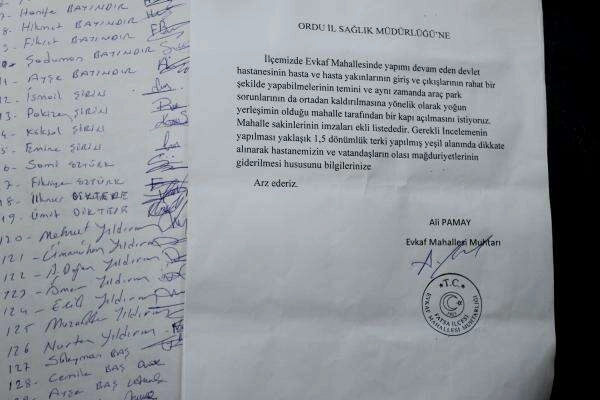 7- Hanife BAYINDIR
8. Hikmet BAYINDIR
9. Fikret BAYINDIR
Saduman BAYINDIR
Ayşe BAYINDIR
12 İsmail ŞİRİN
13. Pakize ŞİRİN
4. Köksal ŞİRİN
5- Emine ŞİRİN
6- Sami ÖZTÜRK
7- Fikriye ÖZTÜRK
18. İlknur DİKTEPE
19. Ümit DİKTEPE
120- Mehmet Yıldırım
121- Yıldırım
122- A. Doğan Yıldırım
123- Ömer Yıldırım
124- Yıldırım
125 Muzaffer Yıldırım
126 Nurten Yıldırım
127 Süleyman BAŞ
128- Cemile BAŞ
Ayşe BAŞ
ORDU İL SAĞLIK MÜDÜRLÜĞÜ'NE
İlçemizde Evkaf Mahallesinde yapımı devam eden devlet
hastanesinin hasta ve hasta yakınlarının giriş ve çıkışlarının rahat bir
şekilde yapabilmelerinin temini ve aynı zamanda araç park
sorunlarının da ortadan kaldırılmasına yönelik olarak yoğun
yerleşimin olduğu mahalle tarafından bir kapı açılmasını istiyoruz.
Mahalle sakinlerinin imzaları ekli listededir. Gerekli İncelemenin
yapılması yaklaşık 1,5 dönümlük terki yapılmış yeşil alanında dikkate
alınarak hastanemizin ve vatandaşların olası mağduriyetlerinin
giderilmesi hususunu bilgilerinize
Arz ederiz.
Ali PAMAY
Evkaf Mahallesi Muhtarı
T.C.
FATSA İLÇESİ
EVKAF MAHALLESİ MUHTARLIĞI